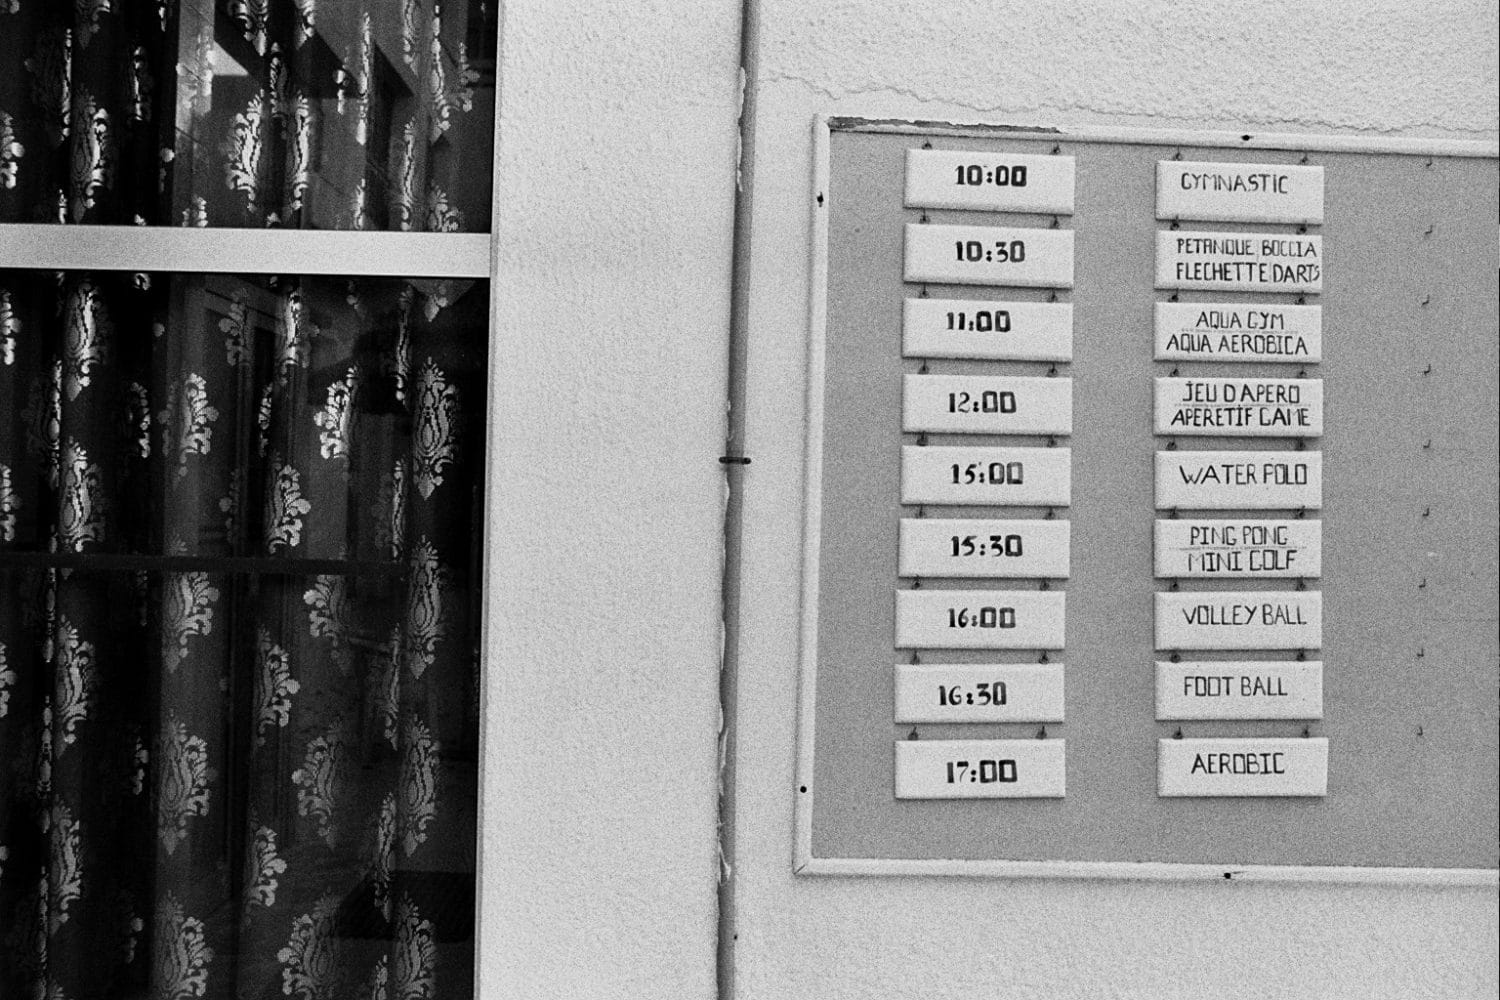 10:00 GYMNASTIC
10:30 PETANQUE BOCCIA
FLECHETTE DARTS
11:00 AQUA GYM
AQUA AEROBICA
12:00 JEU D APERO
APERETIF GAME
15:00 WATER POLO
15:30 PING PONG
MINI GOLF
16:00 VOLLEY BALL
16:30 FOOT BALL
17:00 AEROBIC